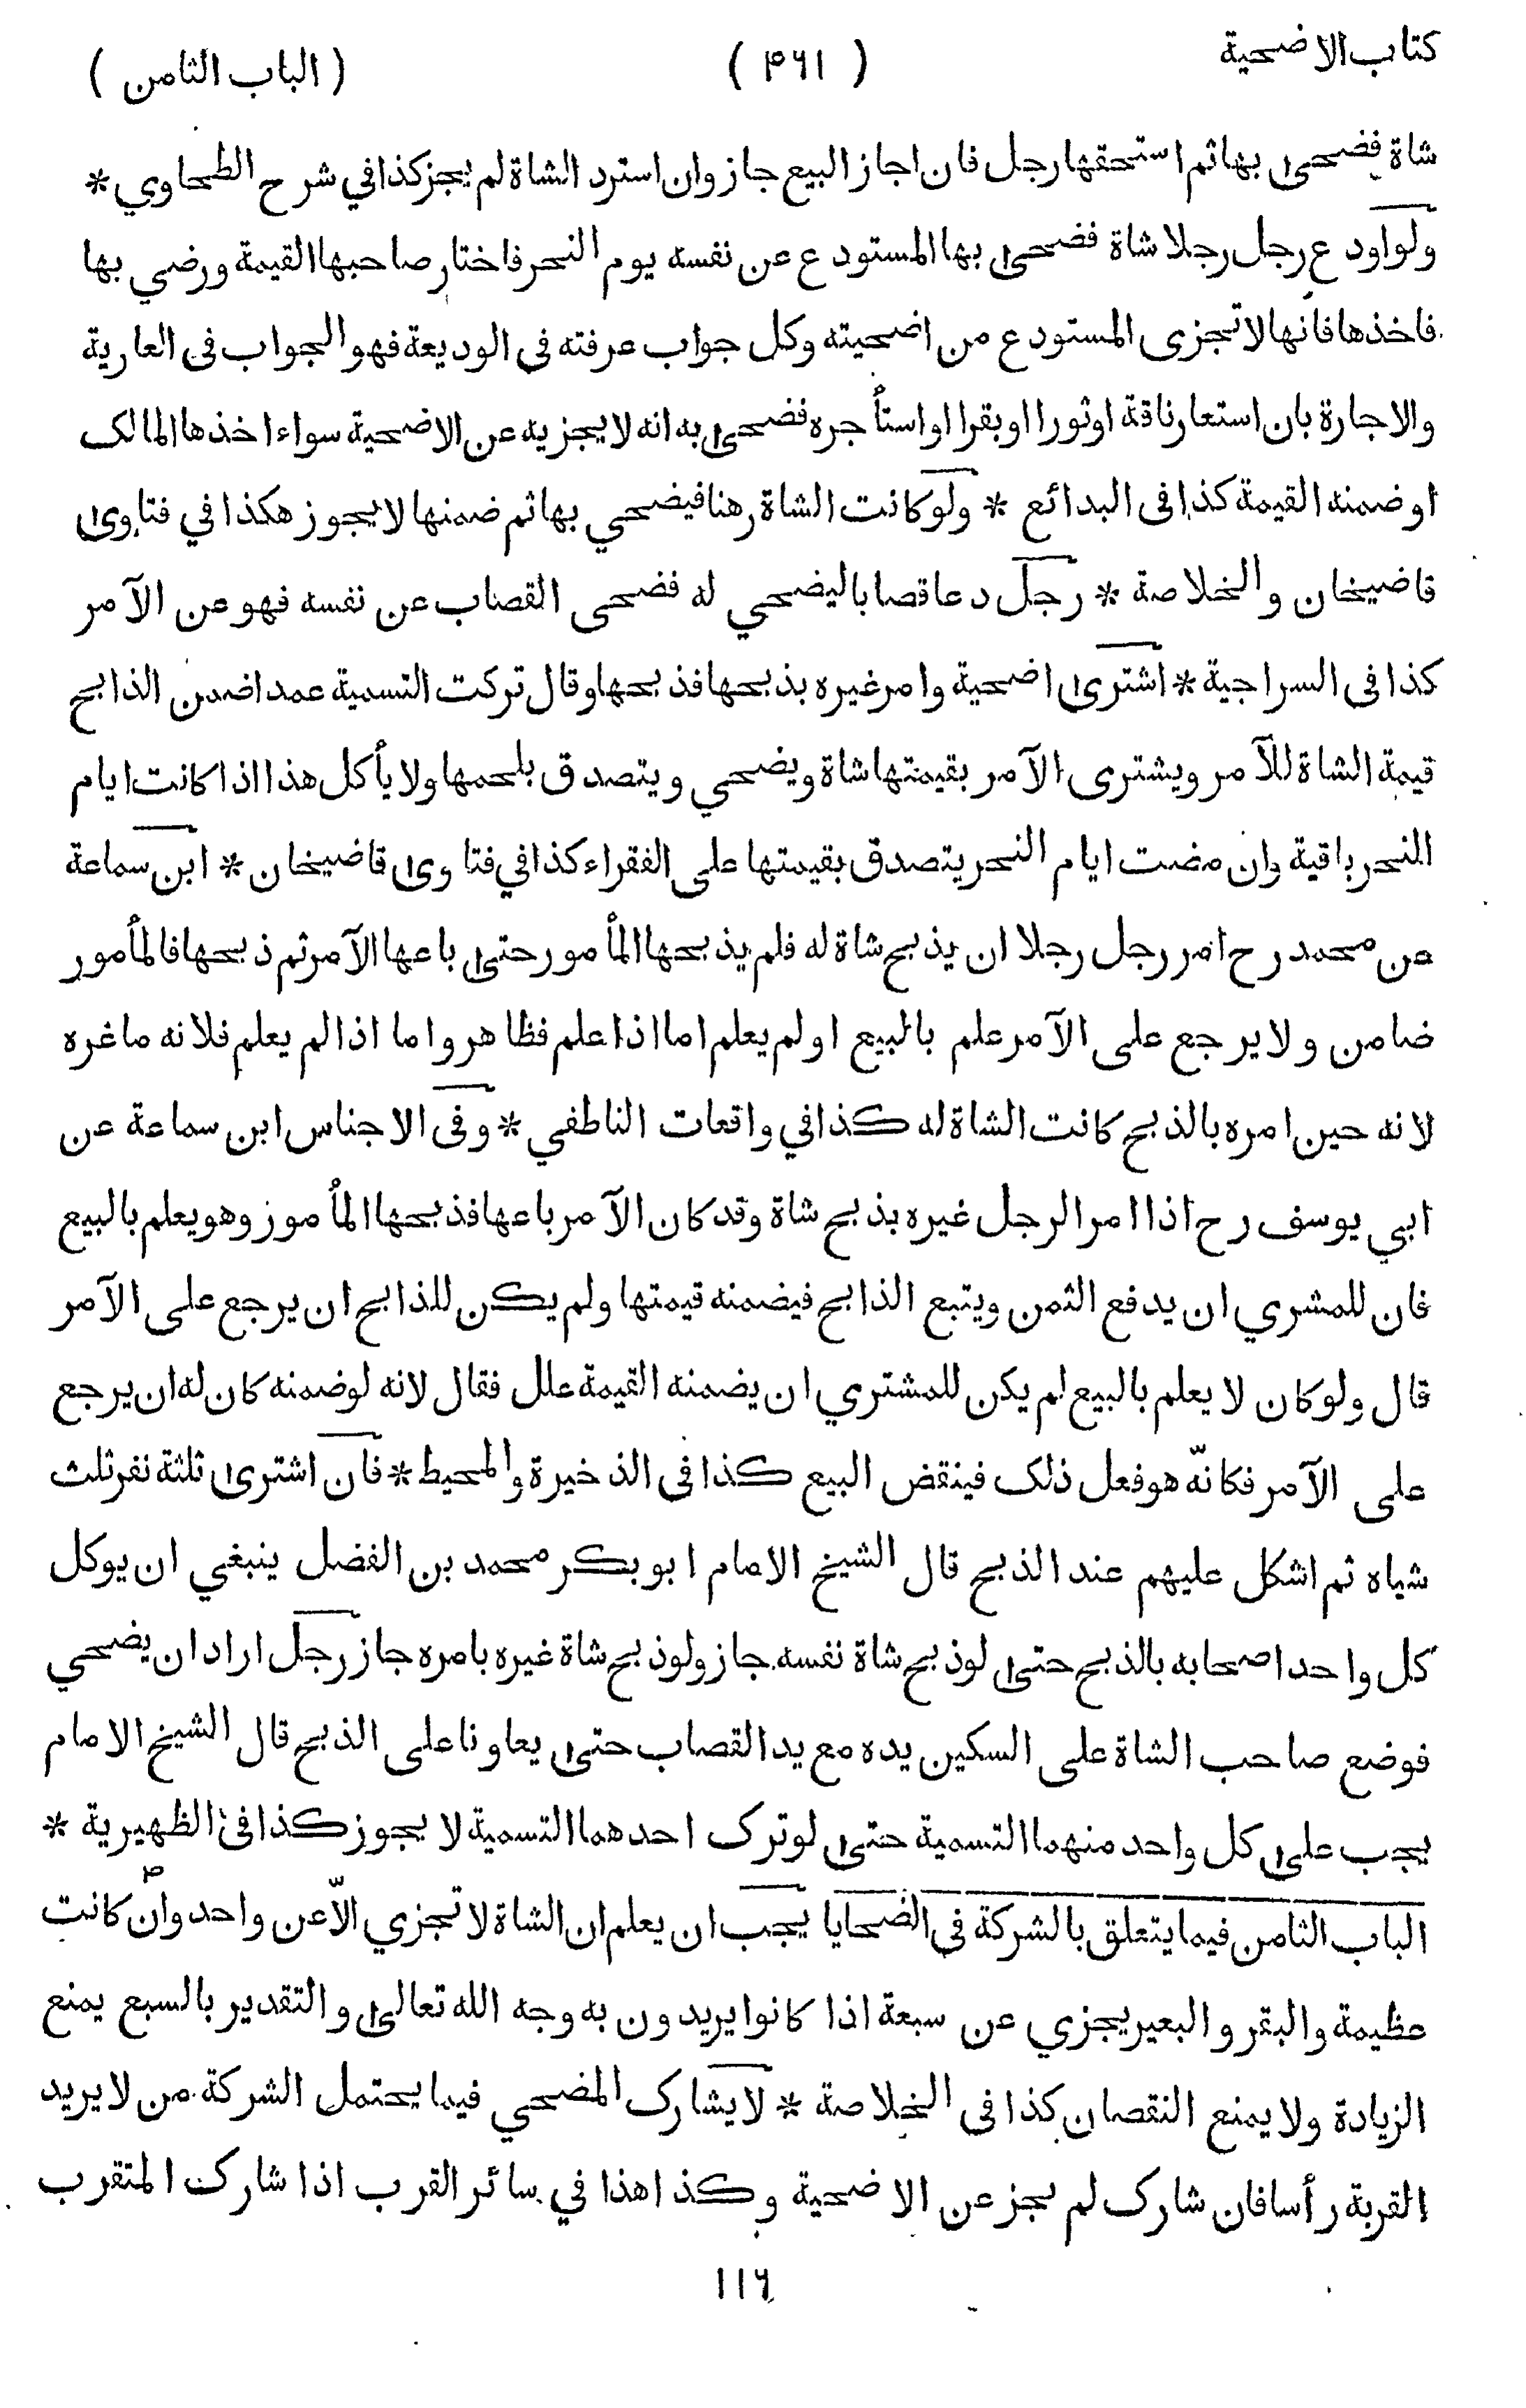 كتاب الاضحية ( ۴۶۱ ) ( الباب الثامن )
شاة فضحى بها ثم استحقها رجل فان اجاز البيع جاز وان استرد الشاة لم يجز كذا في شرح الطحاوي *
ولو اودع رجل رجلا شاة فضحى بها المستودع عن نفسه يوم النحر فاختار صاحبها القيمة ورضي بها
فاخذها فانها لا تجزى المستودع من اضحيته وكل جواب عرفته فى الوديعة فهو الجواب فى العارية
والاجارة بان استعار ناقة او ثورا او بقرا او استأجره فضحى به انه لا يجزيه عن الاضحية سواء اخذها المالك
او ضمنه القيمة كذا فى البدائع * ولو كانت الشاة رهنا فيضحي بها ثم ضمنها لا يجوز هكذا في فتاوى
قاضيخان والخلاصة * رجل دعا قصابا ليضحي له فضحى القصاب عن نفسه فهو عن الآمر
كذا فى السراجية * اشترى اضحية وامر غيره بذبحها فذبحها وقال تركت التسمية عمدا ضمن الذابح
قيمة الشاة للآمر ويشترى الآمر بقيمتها شاة ويضحي ويتصدق بلحمها ولا يأكل هذا اذا كانت ايام
النحر باقية وان مضت ايام النحر يتصدق بقيمتها على الفقراء كذا في فتاوى قاضيخان * ابن سماعة
عن محمد رح امر رجل رجلا ان يذبح شاة له فلم يذبحها المأمور حتى باعها الآمر ثم ذبحها فالمأمور
ضامن ولا يرجع على الآمر علم بالبيع او لم يعلم اما اذا علم فظاهر واما اذا لم يعلم فلانه ما غره
لانه حين امره بالذبح كانت الشاة له كذا في واقعات الناطفي * وفى الاجناس ابن سماعة عن
ابي يوسف رح اذا امر الرجل غيره بذبح شاة وقد كان الآمر باعها فذبحها المأمور وهو يعلم بالبيع
فان للمشري ان يدفع الثمن ويتبع الذابح فيضمنه قيمتها ولم يكن للذابح ان يرجع على الآمر
قال ولو كان لا يعلم بالبيع لم يكن للمشتري ان يضمنه القيمة علل فقال لانه لو ضمنه كان له ان يرجع
على الآمر فكانّه هو فعل ذلك فينقض البيع كذا فى الذخيرة والمحيط * فان اشترى ثلثة نفر ثلث
شياه ثم اشكل عليهم عند الذبح قال الشيخ الامام ابو بكر محمد بن الفضل ينبغي ان يوكل
كل واحد اصحابه بالذبح حتى لو ذبح شاة نفسه جاز ولو ذبح شاة غيره بامره جاز رجل اراد ان يضحي
فوضع صاحب الشاة على السكين يده مع يد القصاب حتى يعاونا على الذبح قال الشيخ الامام
يجب على كل واحد منهما التسمية حتى لو ترك احدهما التسمية لا يجوز كذا فى الظهيرية *
الباب الثامن فيما يتعلق بالشركة فى الضحايا يجب ان يعلم ان الشاة لا تجزي الّا عن واحد وان كانت
عظيمة والبقر والبعير يجزي عن سبعة اذا كانوا يريدون به وجه الله تعالى والتقدير بالسبع يمنع
الزيادة ولا يمنع النقصان كذا فى الخلاصة * لا يشارك المضحي فيما يحتمل الشركة من لا يريد
القربة رأسا فان شارك لم يجز عن الاضحية وكذا هذا في سائر القرب اذا شارك المتقرب
۱۱۶